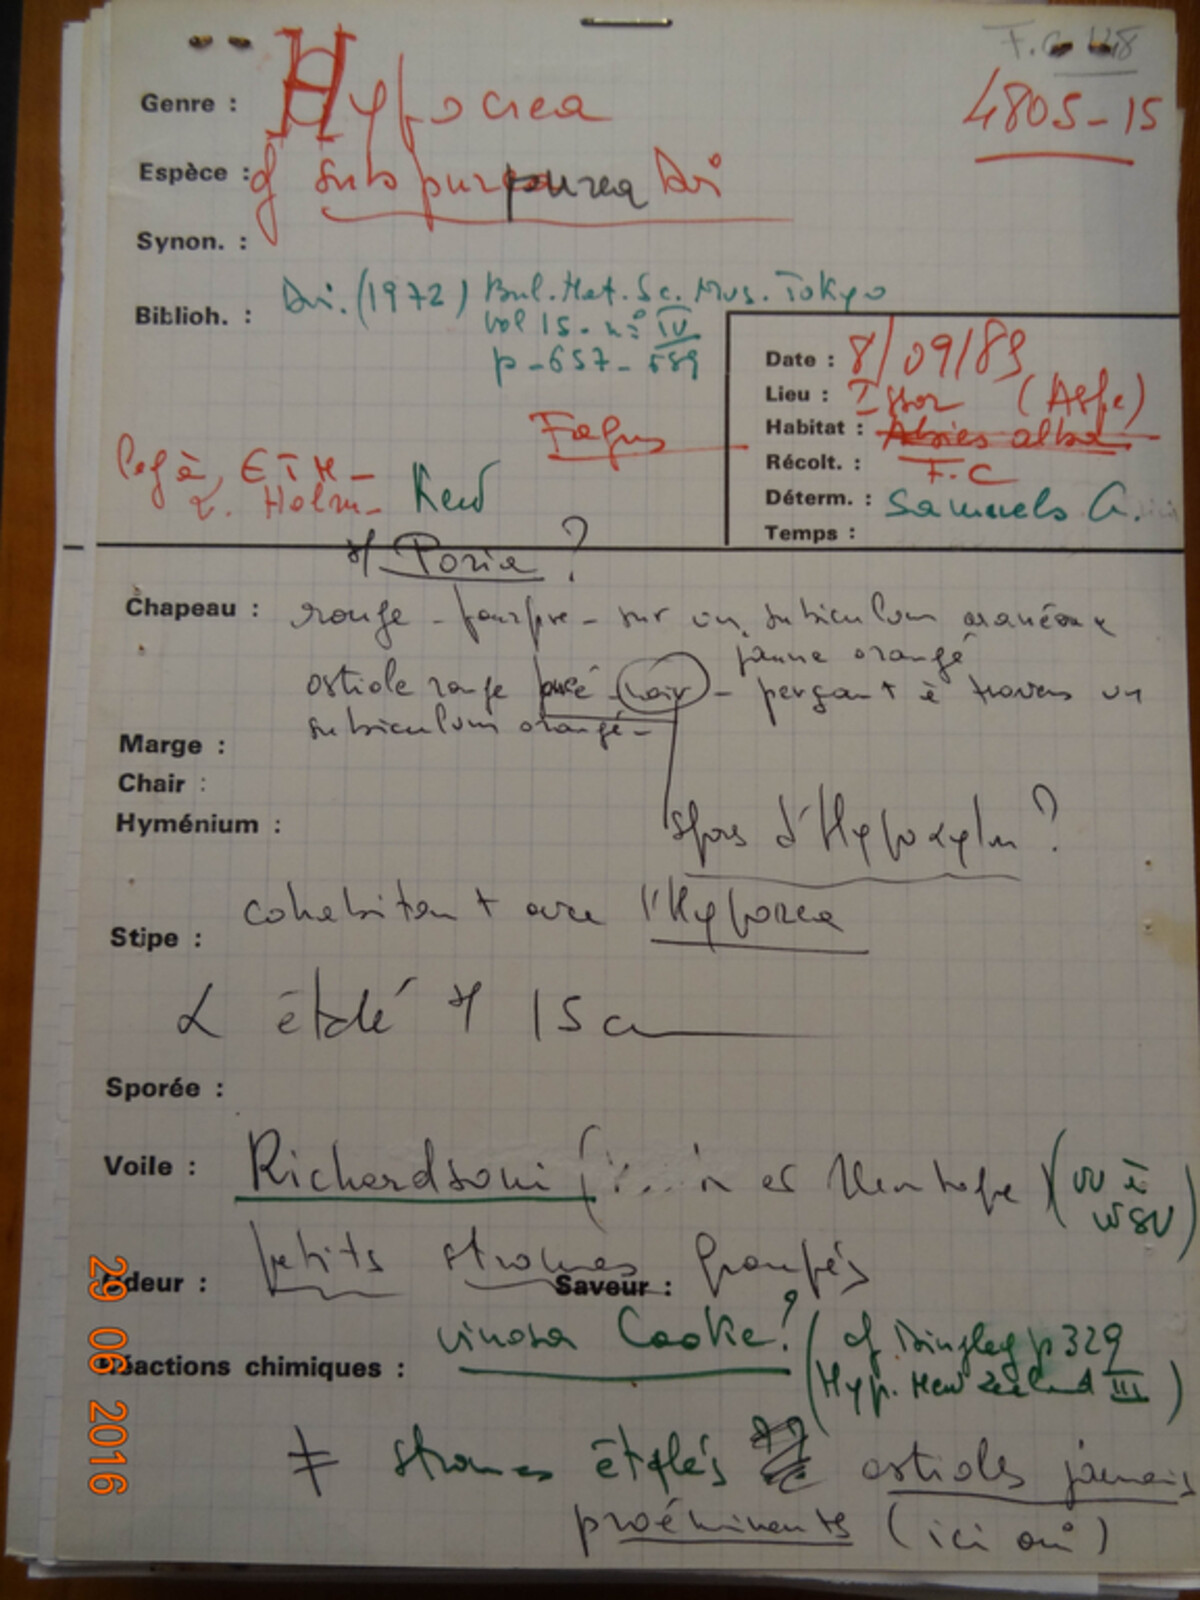 F.C 118
Genre : Hypocrea
4805-15
Espèce : cf subpurpurea Doi
Synon. :
Biblioh. : Doi. (1972) Bul. Nat. Sc. Mus. Tokyo
vol 15. n° IV
p-657-
Date : 8/09/83
Lieu : Issor (Aspe)
Habitat : Abies alba
Fagus
Récolt. : F.C
Déterm. : Samuels G.
Temps :
leg à, ETH -
L. Holm- Kew
Poria ?
Chapeau : rouge - pourpre - sur un subiculum aranéeux
jaune orangé
ostiole rouge foncé noir - perçant à travers un
subiculum orangé -
Marge :
Chair :
Hyménium :
spores d'Hypoxylon ?
cohabitant avec l'Hypocrea
Stipe :
étalé 15 cm
Sporée :
Voile : Richardsoni es Ned
petits stromes groupés
Odeur :
Saveur :
vinosa Cooke ? (cf Dingley p 329
Réactions chimiques :
Hyp. New Zeeland III)
≠ stromes étalés ostioles jamais
proéminents (ici oui)
29 06 2016